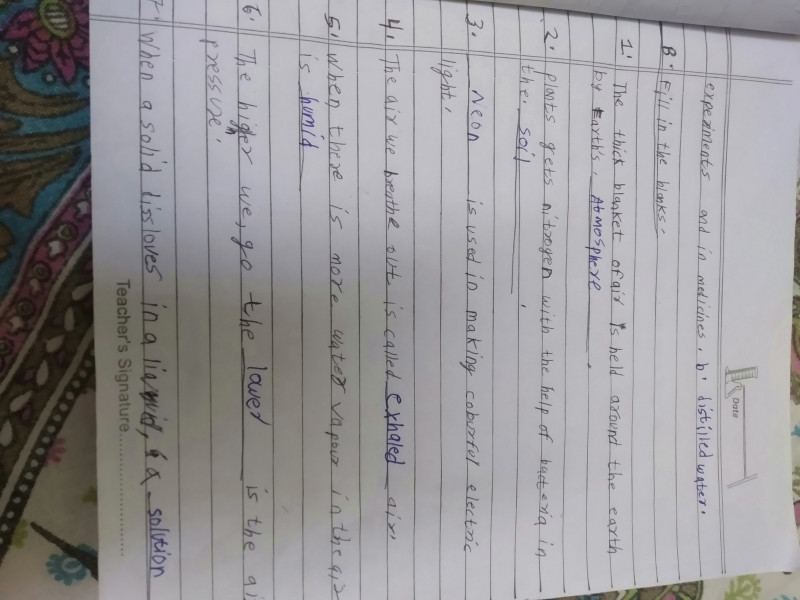 Date
experiments and in medicines, b. distilled water.
B. Fill in the blanks.
1. The thick blanket of air is held around the earth
by Earth's Atmosphere.
2. plants gets nitrogen with the help of bacteria in
the soil.
3. Neon is used in making colourful electric
light.
4. The air we breathe out is called exhaled air.
5. When there is more water vapour in the air
is humid
6. The higher we, go the lower is the ai
pressure.
7. When a solid dissloves in a liquid, a solution
Teacher's Signature..............